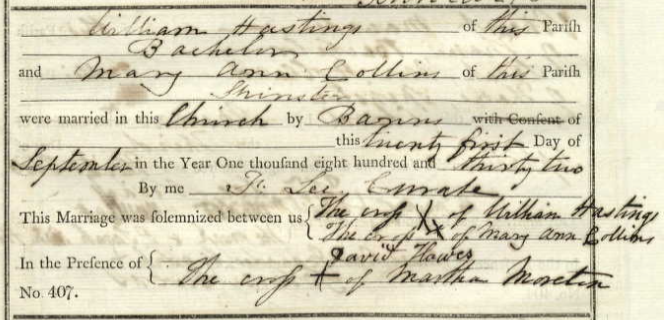 William Hastings of this Parish
Bachelor
and Mary Ann Collins of this Parish
Spinster
were married in this Church by Banns with Consent of
this twenty first Day of
September in the Year One thousand eight hundred and thirty two
By me Lee Curate
This Marriage was solemnized between us { The cross X of William Hastings
The cross X of Mary Ann Collins
In the Presence of { David Howes
The cross + of Martha Moreton
No. 407.